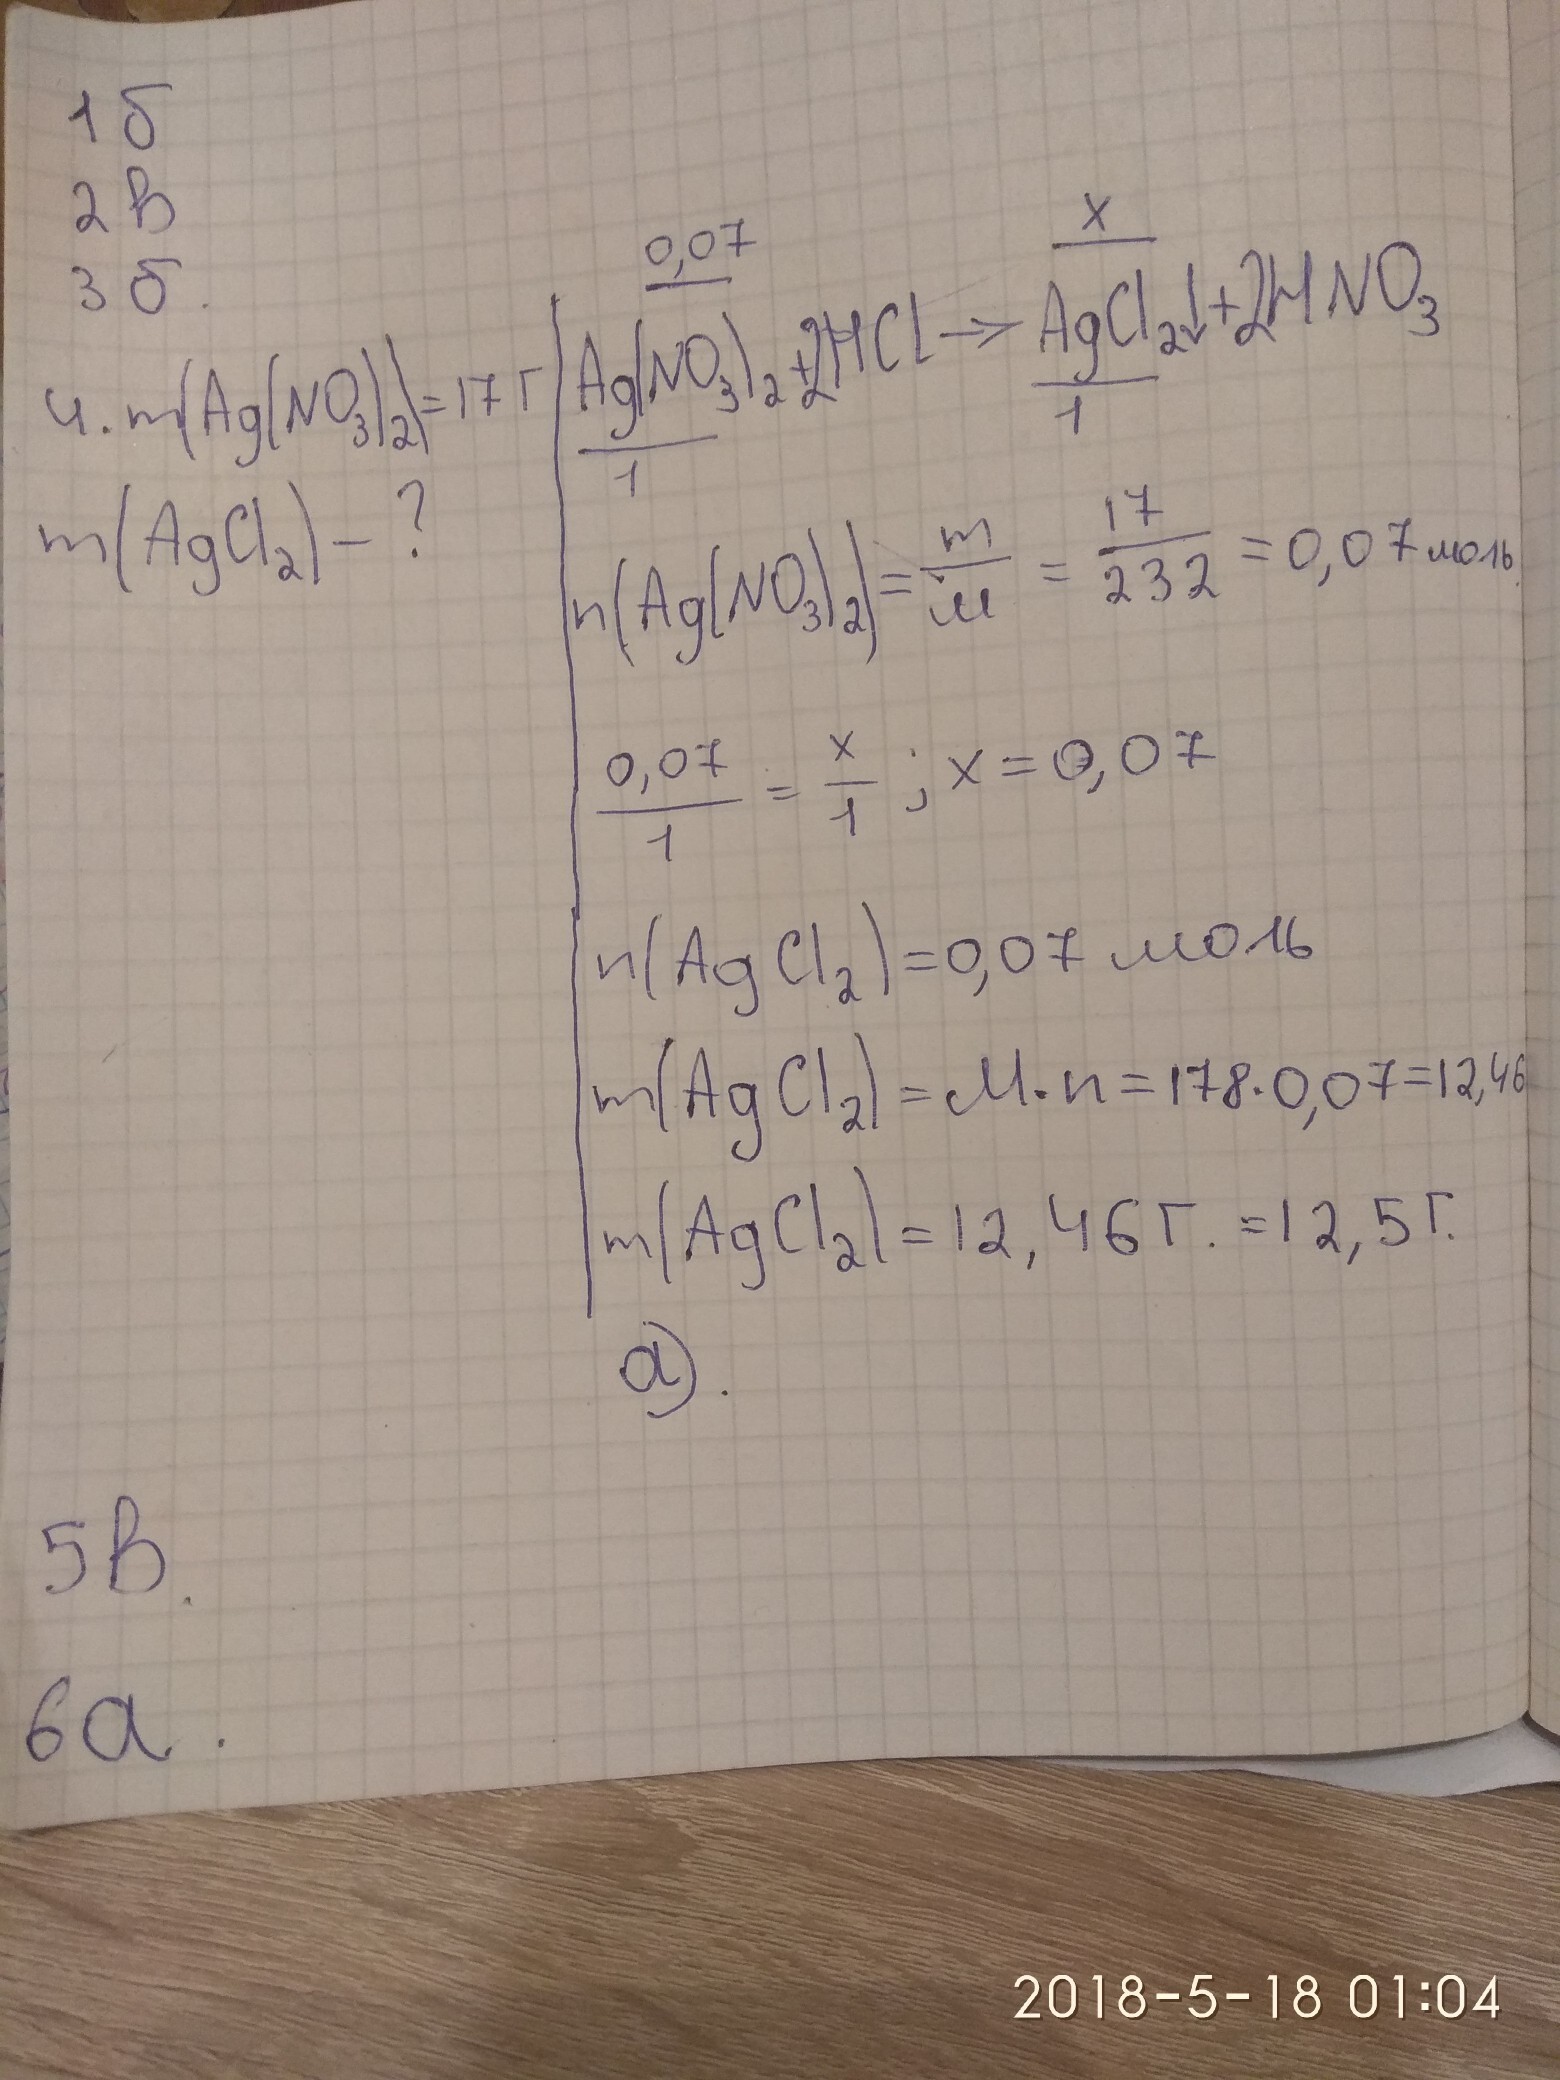 1 б
2 в
3 б.
4. m(Ag(NO₃)₂)=17 г
m(AgCl₂) – ?
0,07 x
Ag(NO₃)₂+2HCl → AgCl₂↓+2HNO₃
1 1
n(Ag(NO₃)₂)= m/M = 17/232 = 0,07 моль
0,07/1 = x/1 ; x = 0,07
n(AgCl₂)=0,07 моль
m(AgCl₂)= M·n=178·0,07=12,46
m(AgCl₂)=12,46 г. =12,5 г.
а).
5 в.
6 а.
2018-5-18 01:04